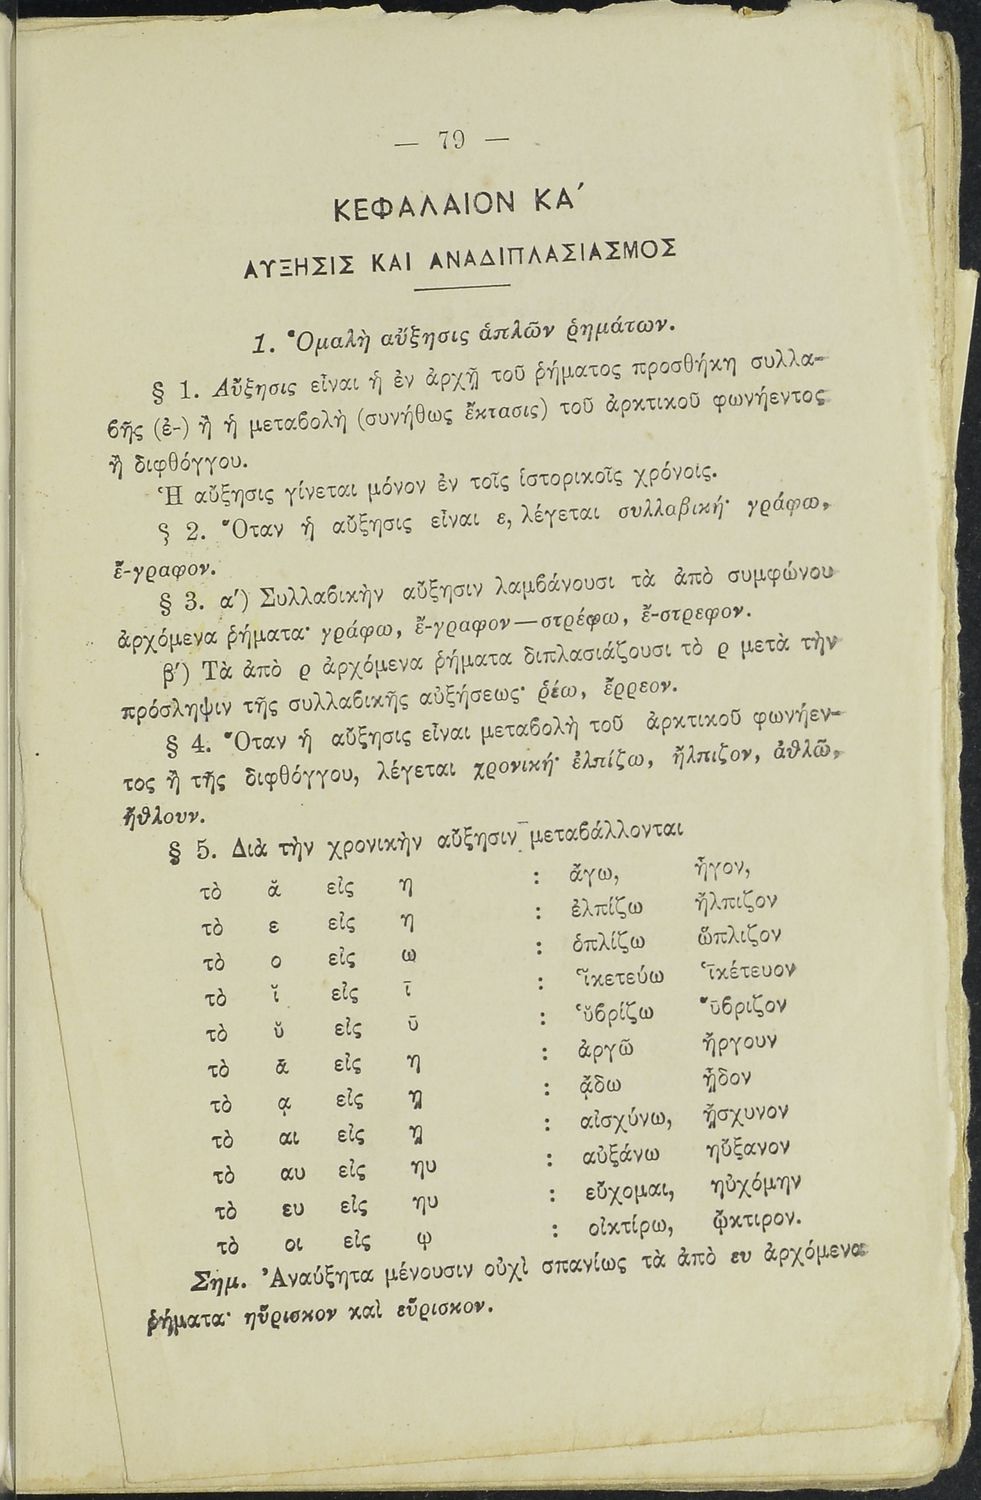 — 79 —
ΚΕΦΑΛΑΙΟΝ ΚΑ′
ΑΥΞΗΣΙΣ ΚΑΙ ΑΝΑΔΙΠΛΑΣΙΑΣΜΟΣ
1. Ὁμαλὴ αὔξησις ἁπλῶν ῥημάτων.
§ 1. Αὔξησις εἶναι ἡ ἐν ἀρχῇ τοῦ ῥήματος προσθήκη συλλα-
βῆς (ἐ-) ἢ ἡ μεταβολὴ (συνήθως ἔκτασις) τοῦ ἀρκτικοῦ φωνήεντος
ἢ διφθόγγου.
Ἡ αὔξησις γίνεται μόνον ἐν τοῖς ἱστορικοῖς χρόνοις.
§ 2. Ὅταν ἡ αὔξησις εἶναι ε, λέγεται συλλαβική· γράφω,
ἔ-γραφον.
§ 3. α′) Συλλαβικὴν αὔξησιν λαμβάνουσι τὰ ἀπὸ συμφώνου
ἀρχόμενα ῥήματα· γράφω, ἔ-γραφον—στρέφω, ἔ-στρεφον.
β′) Τὰ ἀπὸ ρ ἀρχόμενα ῥήματα διπλασιάζουσι τὸ ρ μετὰ τὴν
πρόσληψιν τῆς συλλαβικῆς αὐξήσεως· ῥέω, ἔρρεον.
§ 4. Ὅταν ἡ αὔξησις εἶναι μεταβολὴ τοῦ ἀρκτικοῦ φωνήεν-
τος ἢ τῆς διφθόγγου, λέγεται χρονική· ἐλπίζω, ἤλπιζον, ἀθλῶ,
ἤθλουν.
§ 5. Διὰ τὴν χρονικὴν αὔξησιν μεταβάλλονται
τὸ ᾰ εἰς η : ἄγω, ἦγον,
τὸ ε εἰς η : ἐλπίζω ἤλπιζον
τὸ ο εἰς ω : ὁπλίζω ὥπλιζον
τὸ ῐ εἰς ῑ : ἱ̆κετεύω ἱ̄κέτευον
τὸ ῠ εἰς ῡ : ὑ̆βρίζω ὕ̄βριζον
τὸ ᾱ εἰς η : ἀργῶ ἤργουν
τὸ ᾳ εἰς ῃ : ᾄδω ᾖδον
τὸ αι εἰς ῃ : αἰσχύνω, ᾔσχυνον
τὸ αυ εἰς ηυ : αὐξάνω ηὔξανον
τὸ ευ εἰς ηυ : εὔχομαι, ηὐχόμην
τὸ οι εἰς ῳ : οἰκτίρω, ᾤκτιρον.
Σημ. Ἀναύξητα μένουσιν οὐχὶ σπανίως τὰ ἀπὸ ευ ἀρχόμενα
ῥήματα· ηὕρισκον καὶ εὕρισκον.